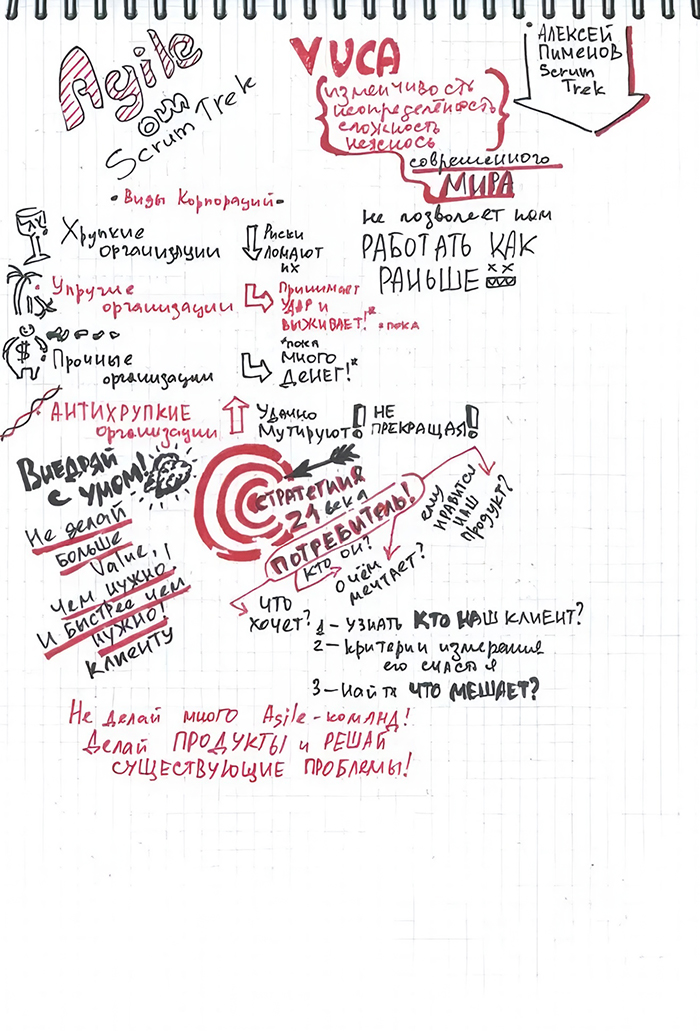 Agile
Scrum Trek
VUCA
изменчивость
неопределённость
сложность
неясность
современного
МИРА
не позволяет нам
РАБОТАТЬ КАК
РАНЬШЕ
АЛЕКСЕЙ
ПИМЕНОВ
Scrum
Trek
• Виды Корпораций •
Хрупкие
организации
Риски
ЛОМАЮТ
их
Упругие
организации
Принимает
УДАР и
ВЫЖИВАЕТ!*
*пока
Прочные
организации
*пока
МНОГО
ДЕНЕГ!*
АНТИХРУПКИЕ
организации
Удачно
Мутируют!
НЕ
ПРЕКРАЩАЯ!
Внедряй
с умом!
Не делай
больше
Value,
чем нужно,
И быстрее чем
нужно!
клиенту
СТРАТЕГИЯ
21 века
ПОТРЕБИТЕЛЬ!
кто он?
что
хочет?
о чём
мечтает?
ему
нравится
наш
продукт?
1 – УЗНАТЬ КТО НАШ КЛИЕНТ?
2 – критерии измерения
его счастья
3 – найти ЧТО МЕШАЕТ?
Не делай много Agile-команд!
Делай ПРОДУКТЫ и РЕШАЙ
СУЩЕСТВУЮЩИЕ ПРОБЛЕМЫ!